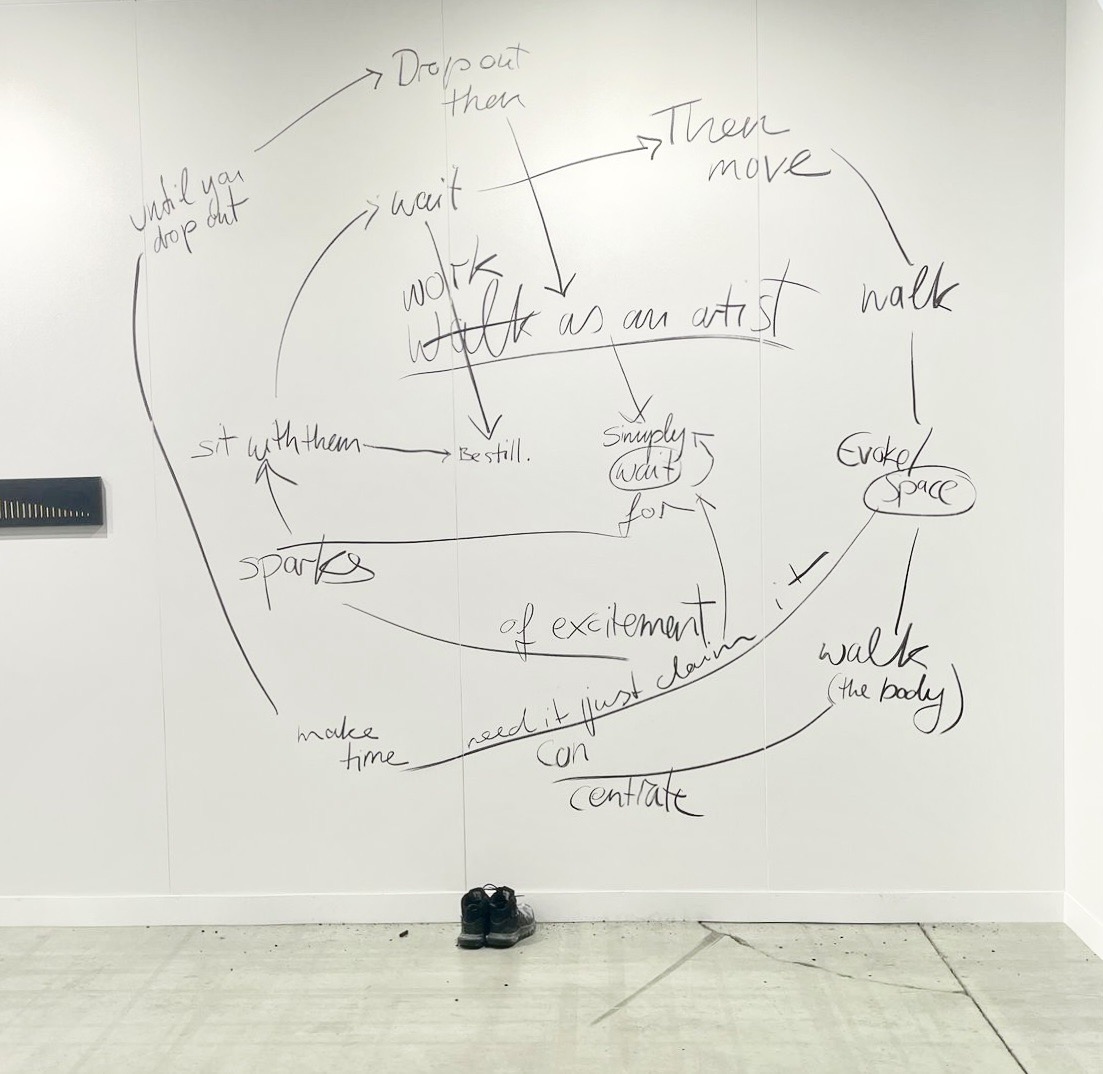 Drop out
then
Then
move
until you
drop out
wait
work
walk as an artist
walk
sit with them
Be still.
simply
wait
for
Evoke/
Space
sparks
of excitement
it
need it just claim
walk
(the body)
make
time
Con
centrate